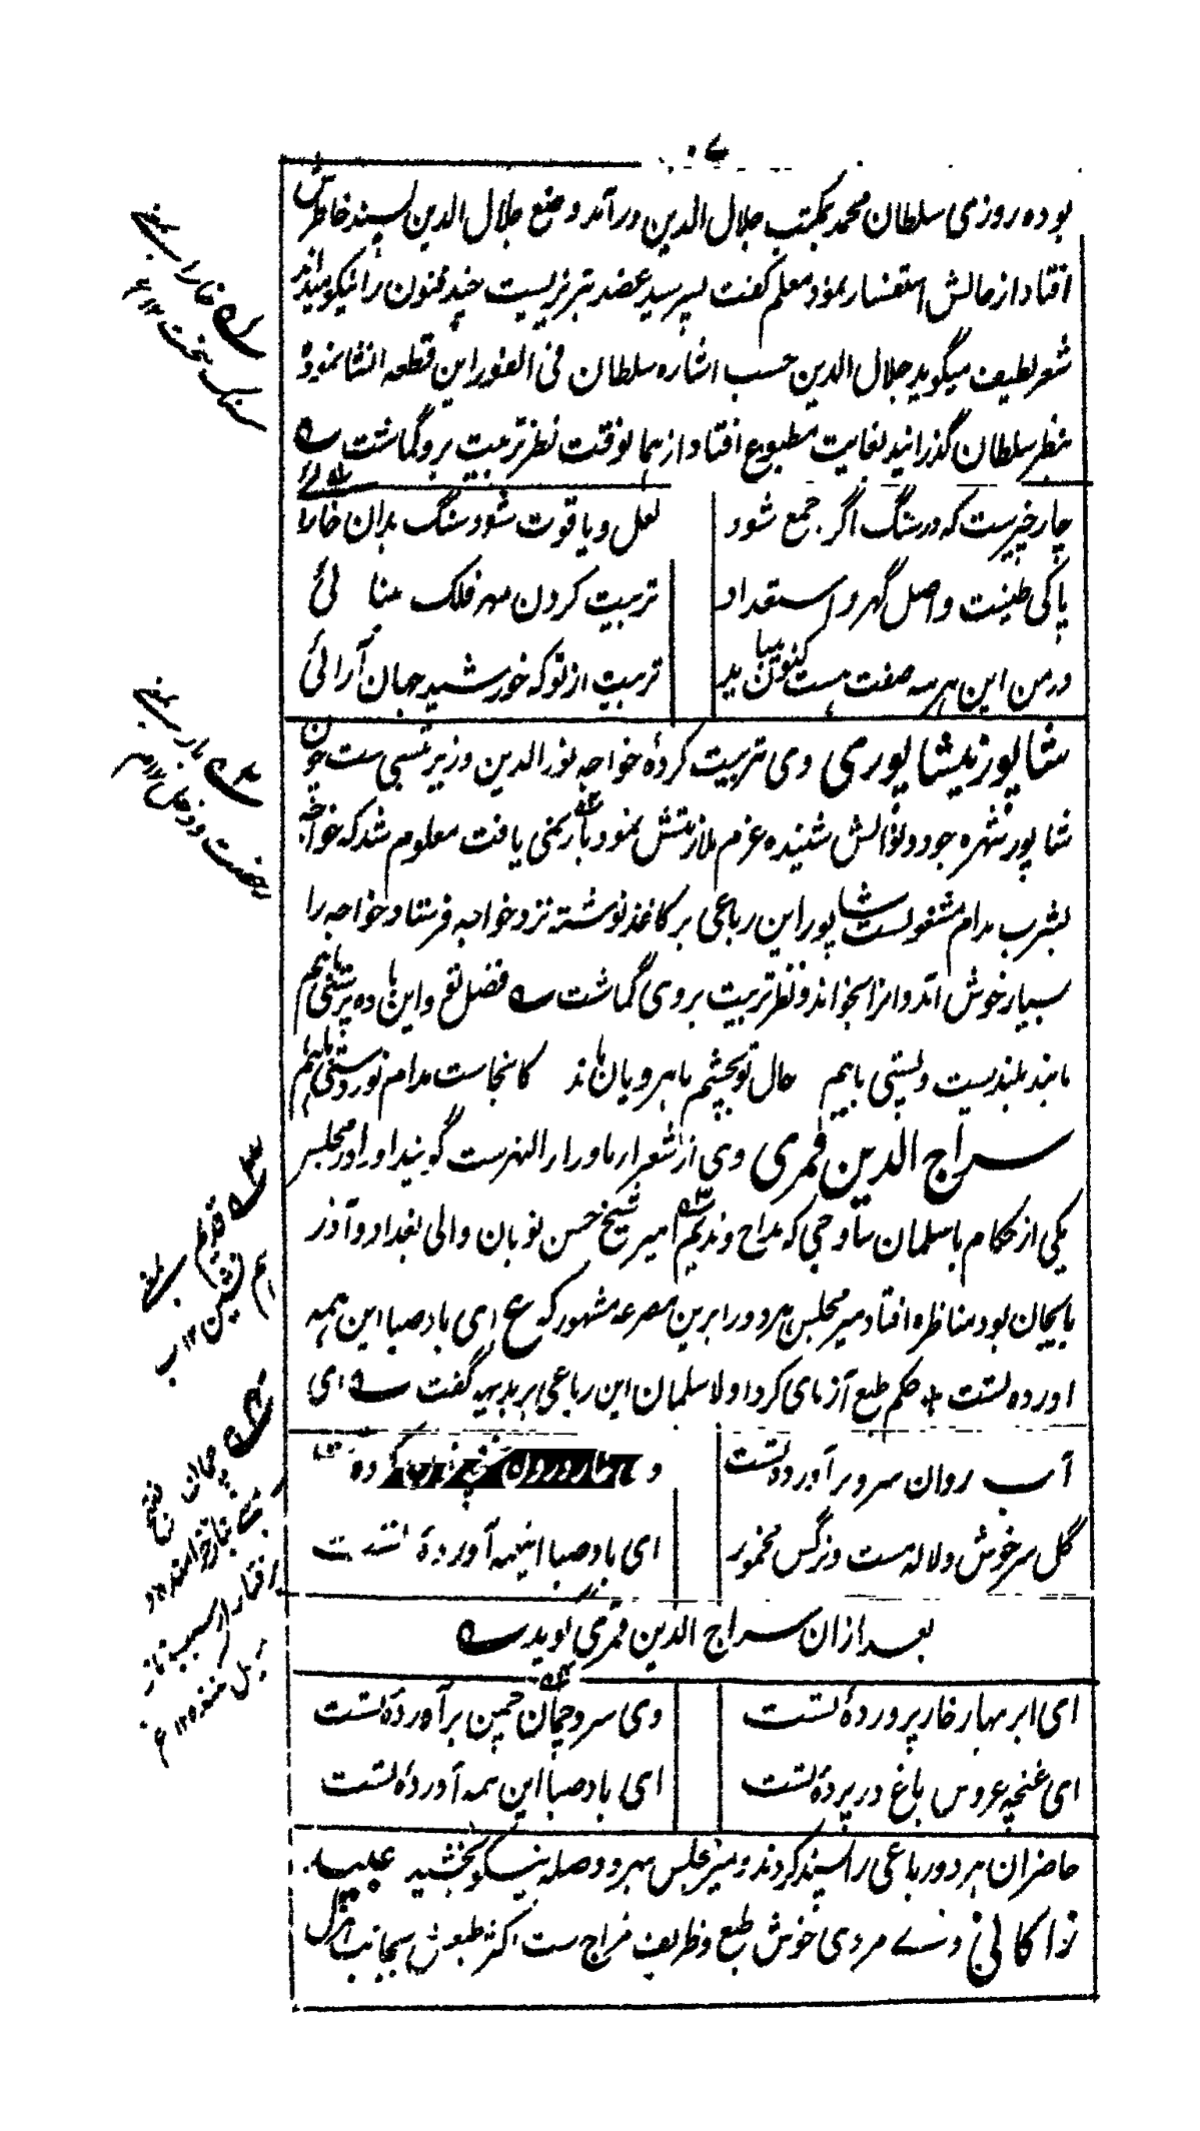 ۷۰
بوده روزی سلطان محمد بمکتب جلال الدین درآمد وضع جلال الدین پسند خاطرش
افتاد از حالش استفسار نمود معلم گفت پسر سید عضد تبریزیست چند فنون را نیکو میداند
شعر لطیف میگوید جلال الدین حسب اشاره سلطان فی الفور این قطعه انشا نموده
بنظر سلطان گذرانید بغایت مطبوع افتاد از همانوقت نظر تربیت برو گماشت
چار چیزست که در سنگ اگر جمع شود
لعل و یاقوت شود سنگ بدان خارائی
پاکی طینت و اصل گهر و استعداد
تربیت کردن مهر فلک مینائی
در من این هر سه صفت هست کنون می‌باید
تربیت از تو که خورشید جهان آرائی
شاپور نیشاپوری وی تربیت کردهٔ خواجه نورالدین وزیر ست چون
شاپور شهره جود و نوالش شنیده عزم ملازمتش نمود بار نمی یافت معلوم شد که خواجه
بشرب مدام مشغولست شاپور این رباعی بر کاغذ نوشته نزد خواجه فرستاد خواجه را
بسیار خوش آمد و او را بخواند و نظر تربیت بر وی گماشت فضل تو و این باده پرستی باهم
مانند بلندیست و پستی باهم حال تو بچشم ماهرویان ماند کانجاست مدام نور و مستی باهم
سراج الدین قمری وی از شعراء ماوراء النهرست گویند او را در مجلس
یکی از حکام با سلمان ساوجی که مداح و ندیم امیر شیخ حسن نویان والی بغداد و آذر
بایجان بود مناظره افتاد میر مجلس هر دو را برین مصرعه مشهور که ع ای باد صبا این همه
آورده تست حکم طبع آزمای کرد اولا سلمان این رباعی بر بدیهه گفت ای
آب روان سرو برآورده تست
گل سرخوش و لاله مست و نرگس مخمور
ای باد صبا اینهمه آوردهٔ تست
بعد ازان سراج الدین قمری گوید
ای ابر بهار خار پروردهٔ تست
وی سرو چمان چمن برآوردهٔ تست
ای غنچه عروس باغ در پردهٔ تست
ای باد صبا این همه آوردهٔ تست
حاضران هر دو رباعی را پسند کردند و میر مجلس بهر دو صله نیکو بخشید عبید
زاکانی وے مردی خوش طبع و ظریف مزاج ست اکثر طبعش بجانب هزل
خارا بمعنے
سنگ سخت ۱۲
بار بمعنے
رخصت و دخل ۱۲
ندیم بمعنے
هم نشین ۱۲